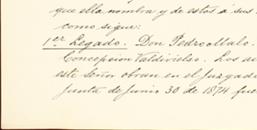 que ella nombra y de estos á sus
como sigue:
1er Legado. Don Pedro Malo.
Concepcion Valdivielso. Los
este Señor obran en el Juzgado
Junta de Junio 30 de 1874 fue